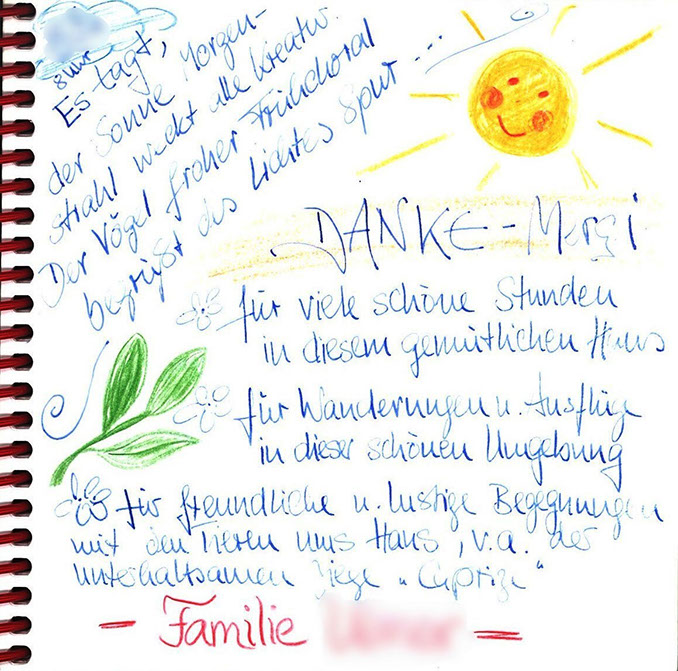 8 uhr
Es tagt,
der Sonne Morgen-
strahl weckt alle Kreatur.
Der Vögel froher Frühchoral
begrüßt des Lichtes Spur ...
DANKE - Merçi
für viele schöne Stunden
in diesem gemütlichen Haus
für Wanderungen u. Ausflüge
in dieser schönen Umgebung
für freundliche u. lustige Begegnungen
mit den Tieren ums Haus, v.a. der
unterhaltsamen Ziege „Caprize"
- Familie